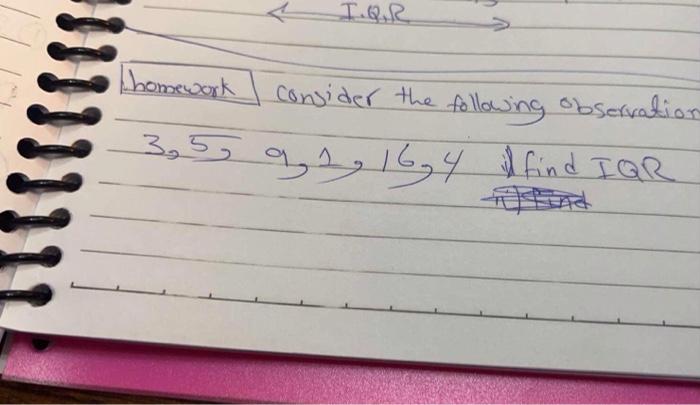 I.Q.R
homework consider the following observation
3, 5, 9, 1, 16, 4 i) find IQR